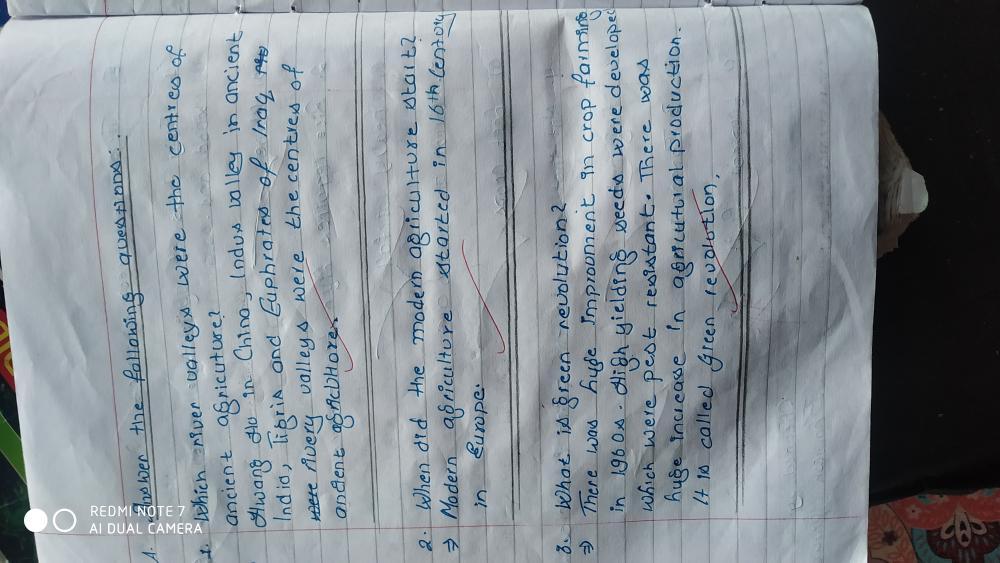 1. Answer the following questions:
1. Which river valleys were the centres of
ancient agricuture?
Hwang Ho in China, Indus valley in ancient
India, Tigris and Euphrates of Iraq
were rivery valleys were the centres of
ancient agriculture.
2. When did the modern agriculture start?
⇒ Modern agriculture started in 16th century
in Europe.
3. What is green revolution?
⇒ There was huge improoment in crop faiming
in 1960s. High yielding seeds were develope
which were pest resistant. There was
huge increase in agricultural production.
It is called Green revolution.
REDMI NOTE 7
AI DUAL CAMERA